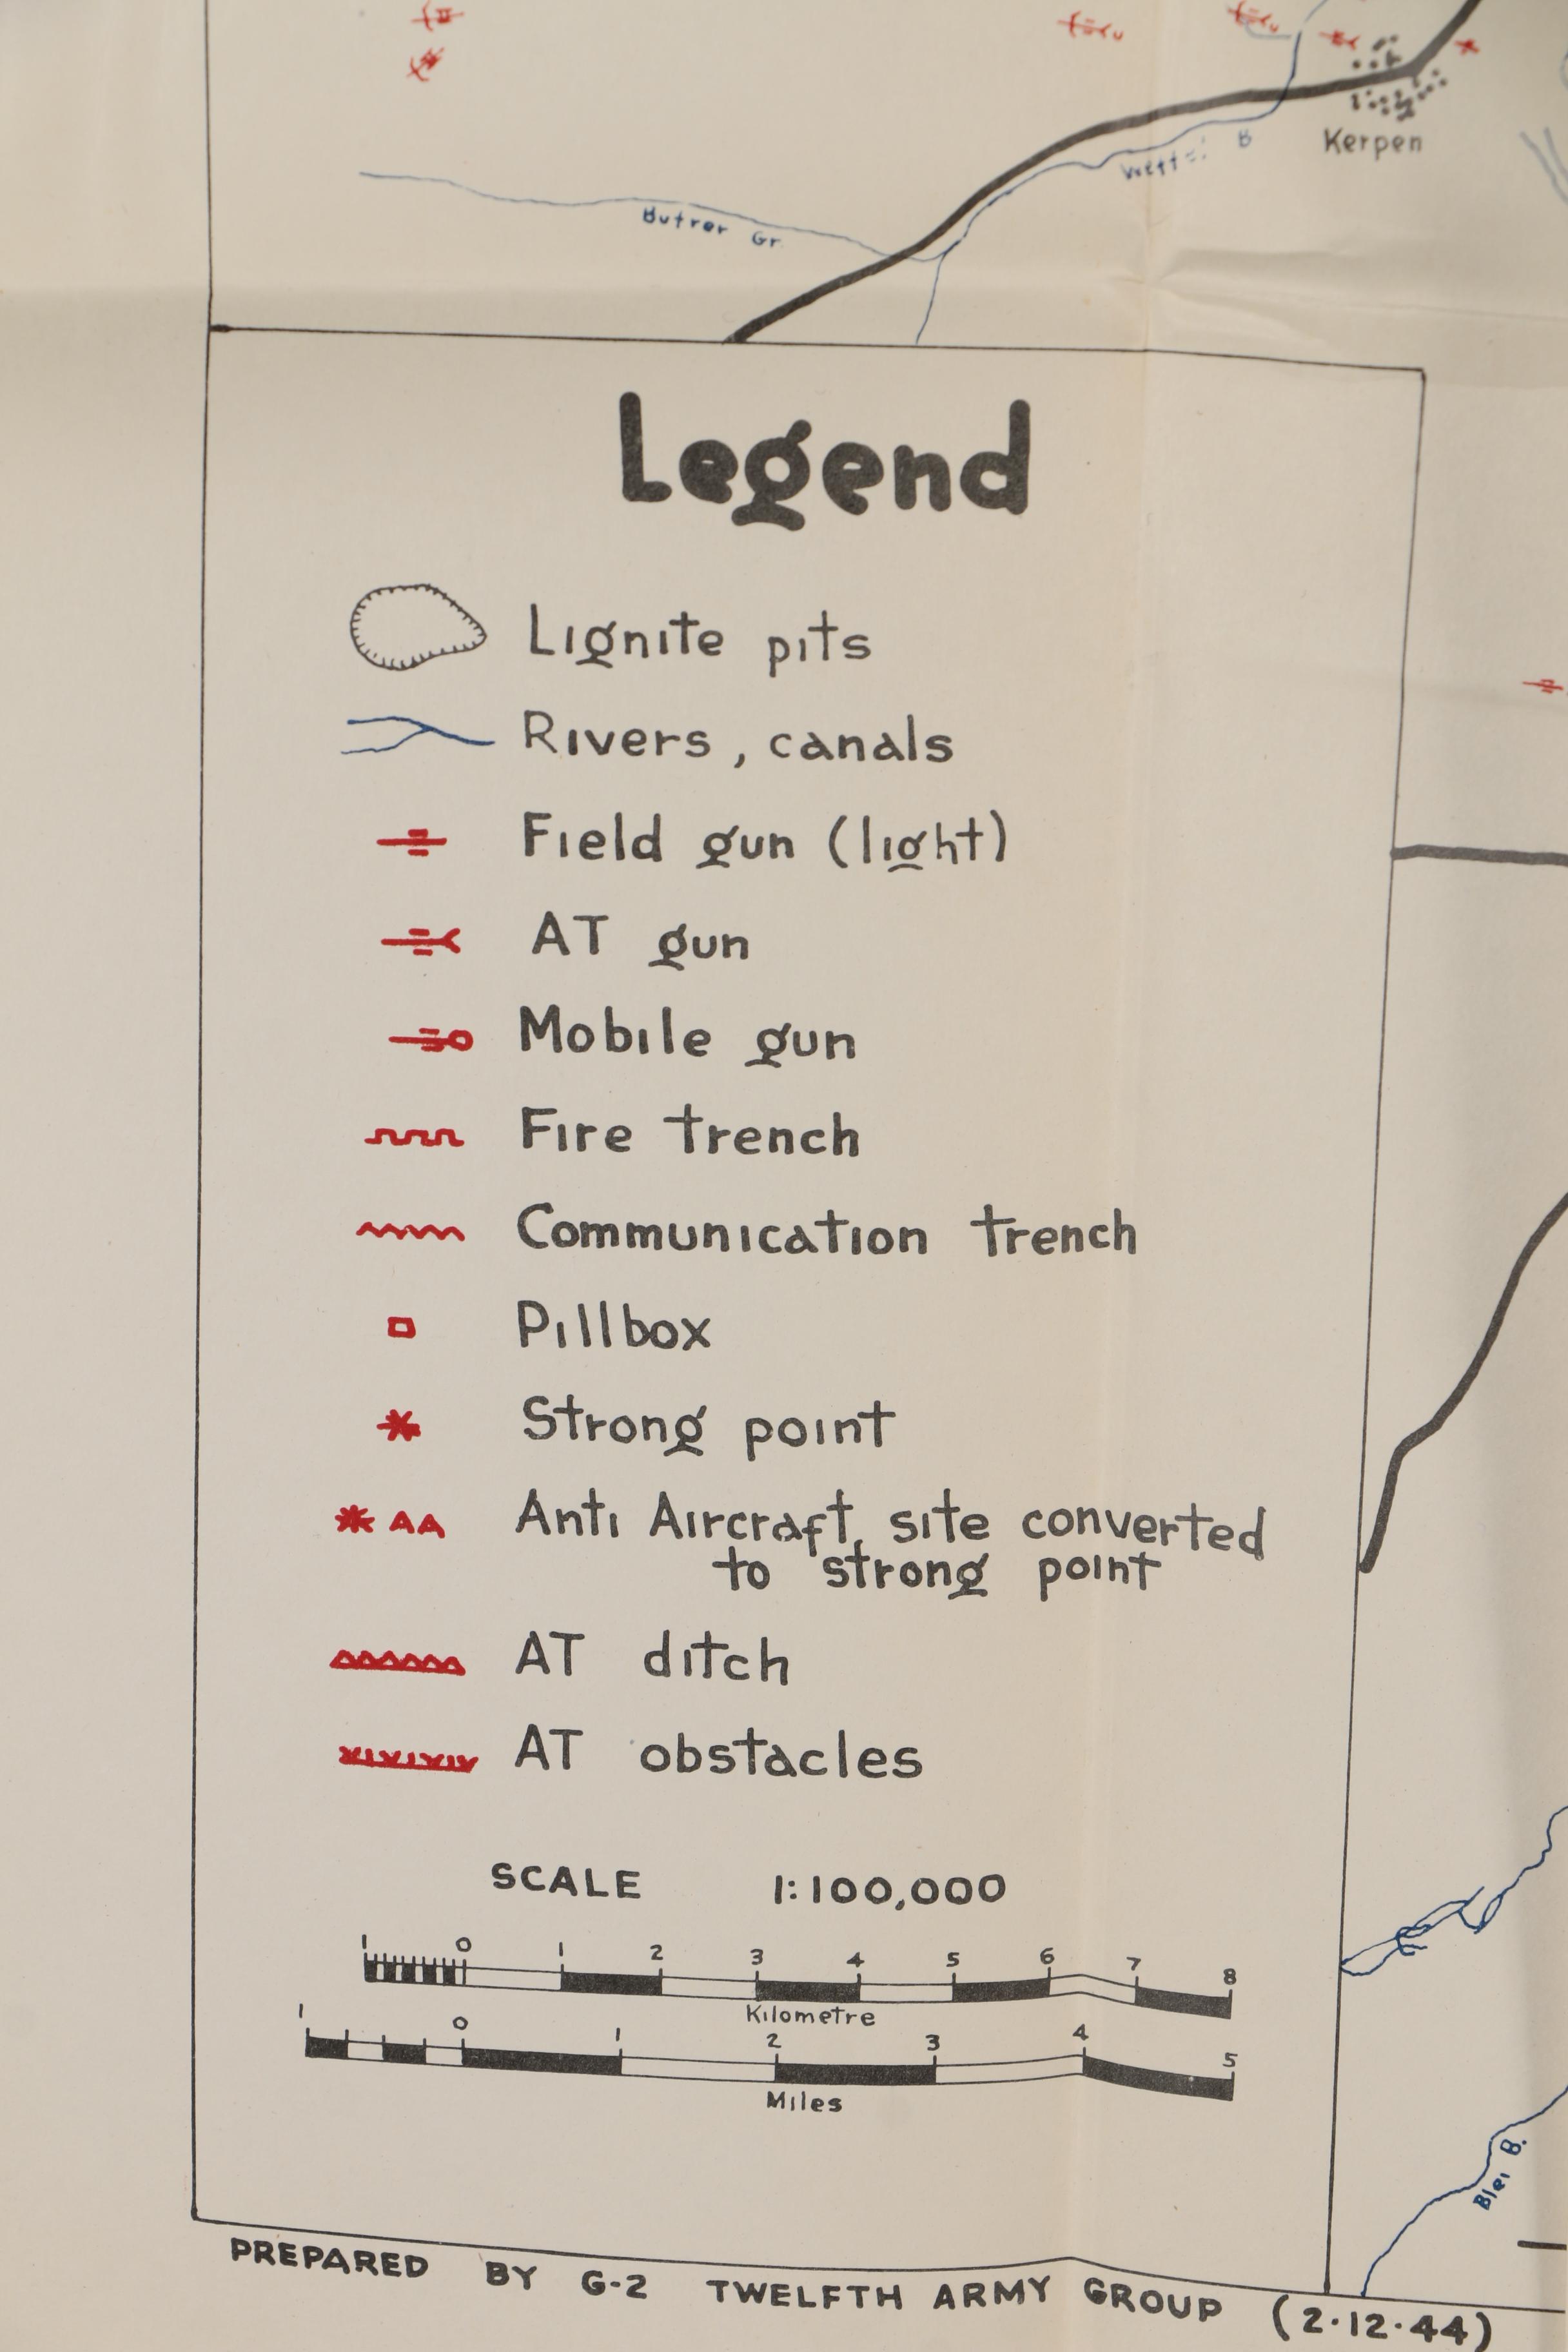 Kerpen
B
Butrer Gr.
Legend
Lignite pits
Rivers, canals
Field gun (light)
AT gun
Mobile gun
Fire trench
Communication trench
Pillbox
Strong point
AA Anti Aircraft, site converted
to strong point
AT ditch
AT obstacles
SCALE 1:100,000
1 0 1 2 3 4 5 6 7 8
Kilometre
1 0 1 2 3 4 5
Miles
Blei B.
PREPARED BY G-2 TWELFTH ARMY GROUP (2.12.44)